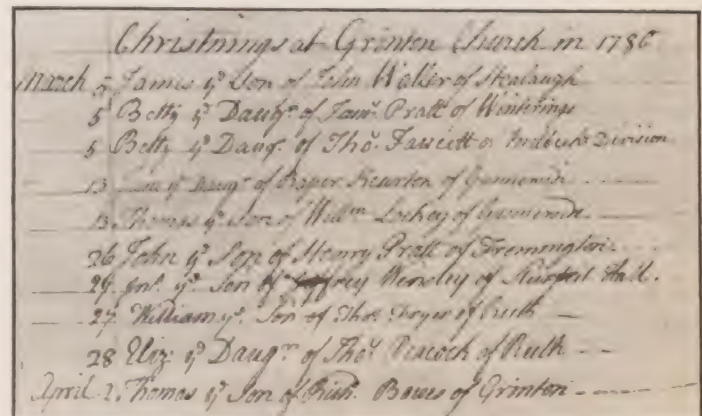 Christnings at Grinton Church in 1786
March 5 James yᵉ Son of John Waller of Healaugh
5 Betty yᵉ Daugʳ of Jamˢ Pratt of Winterings
5 Betty yᵉ Daugʳ of Thoˢ Fawcett of Division
13 yᵉ Daugʳ of Raper Hewrton of Gunnerside
13 Thomas yᵉ Son of Willᵐ Lockey of Gunnerside
26 John yᵉ Son of Henry Pratt of Fremington
yᵉ Son of Jeffrey Wensley of Hall.
27 William yᵉ Son of Thoˢ of
28 Eliz: yᵉ Daugʳ of Thoˢ Peacock of Ruth
April 2 Thomas yᵉ Son of Richᵈ Bowes of Grinton